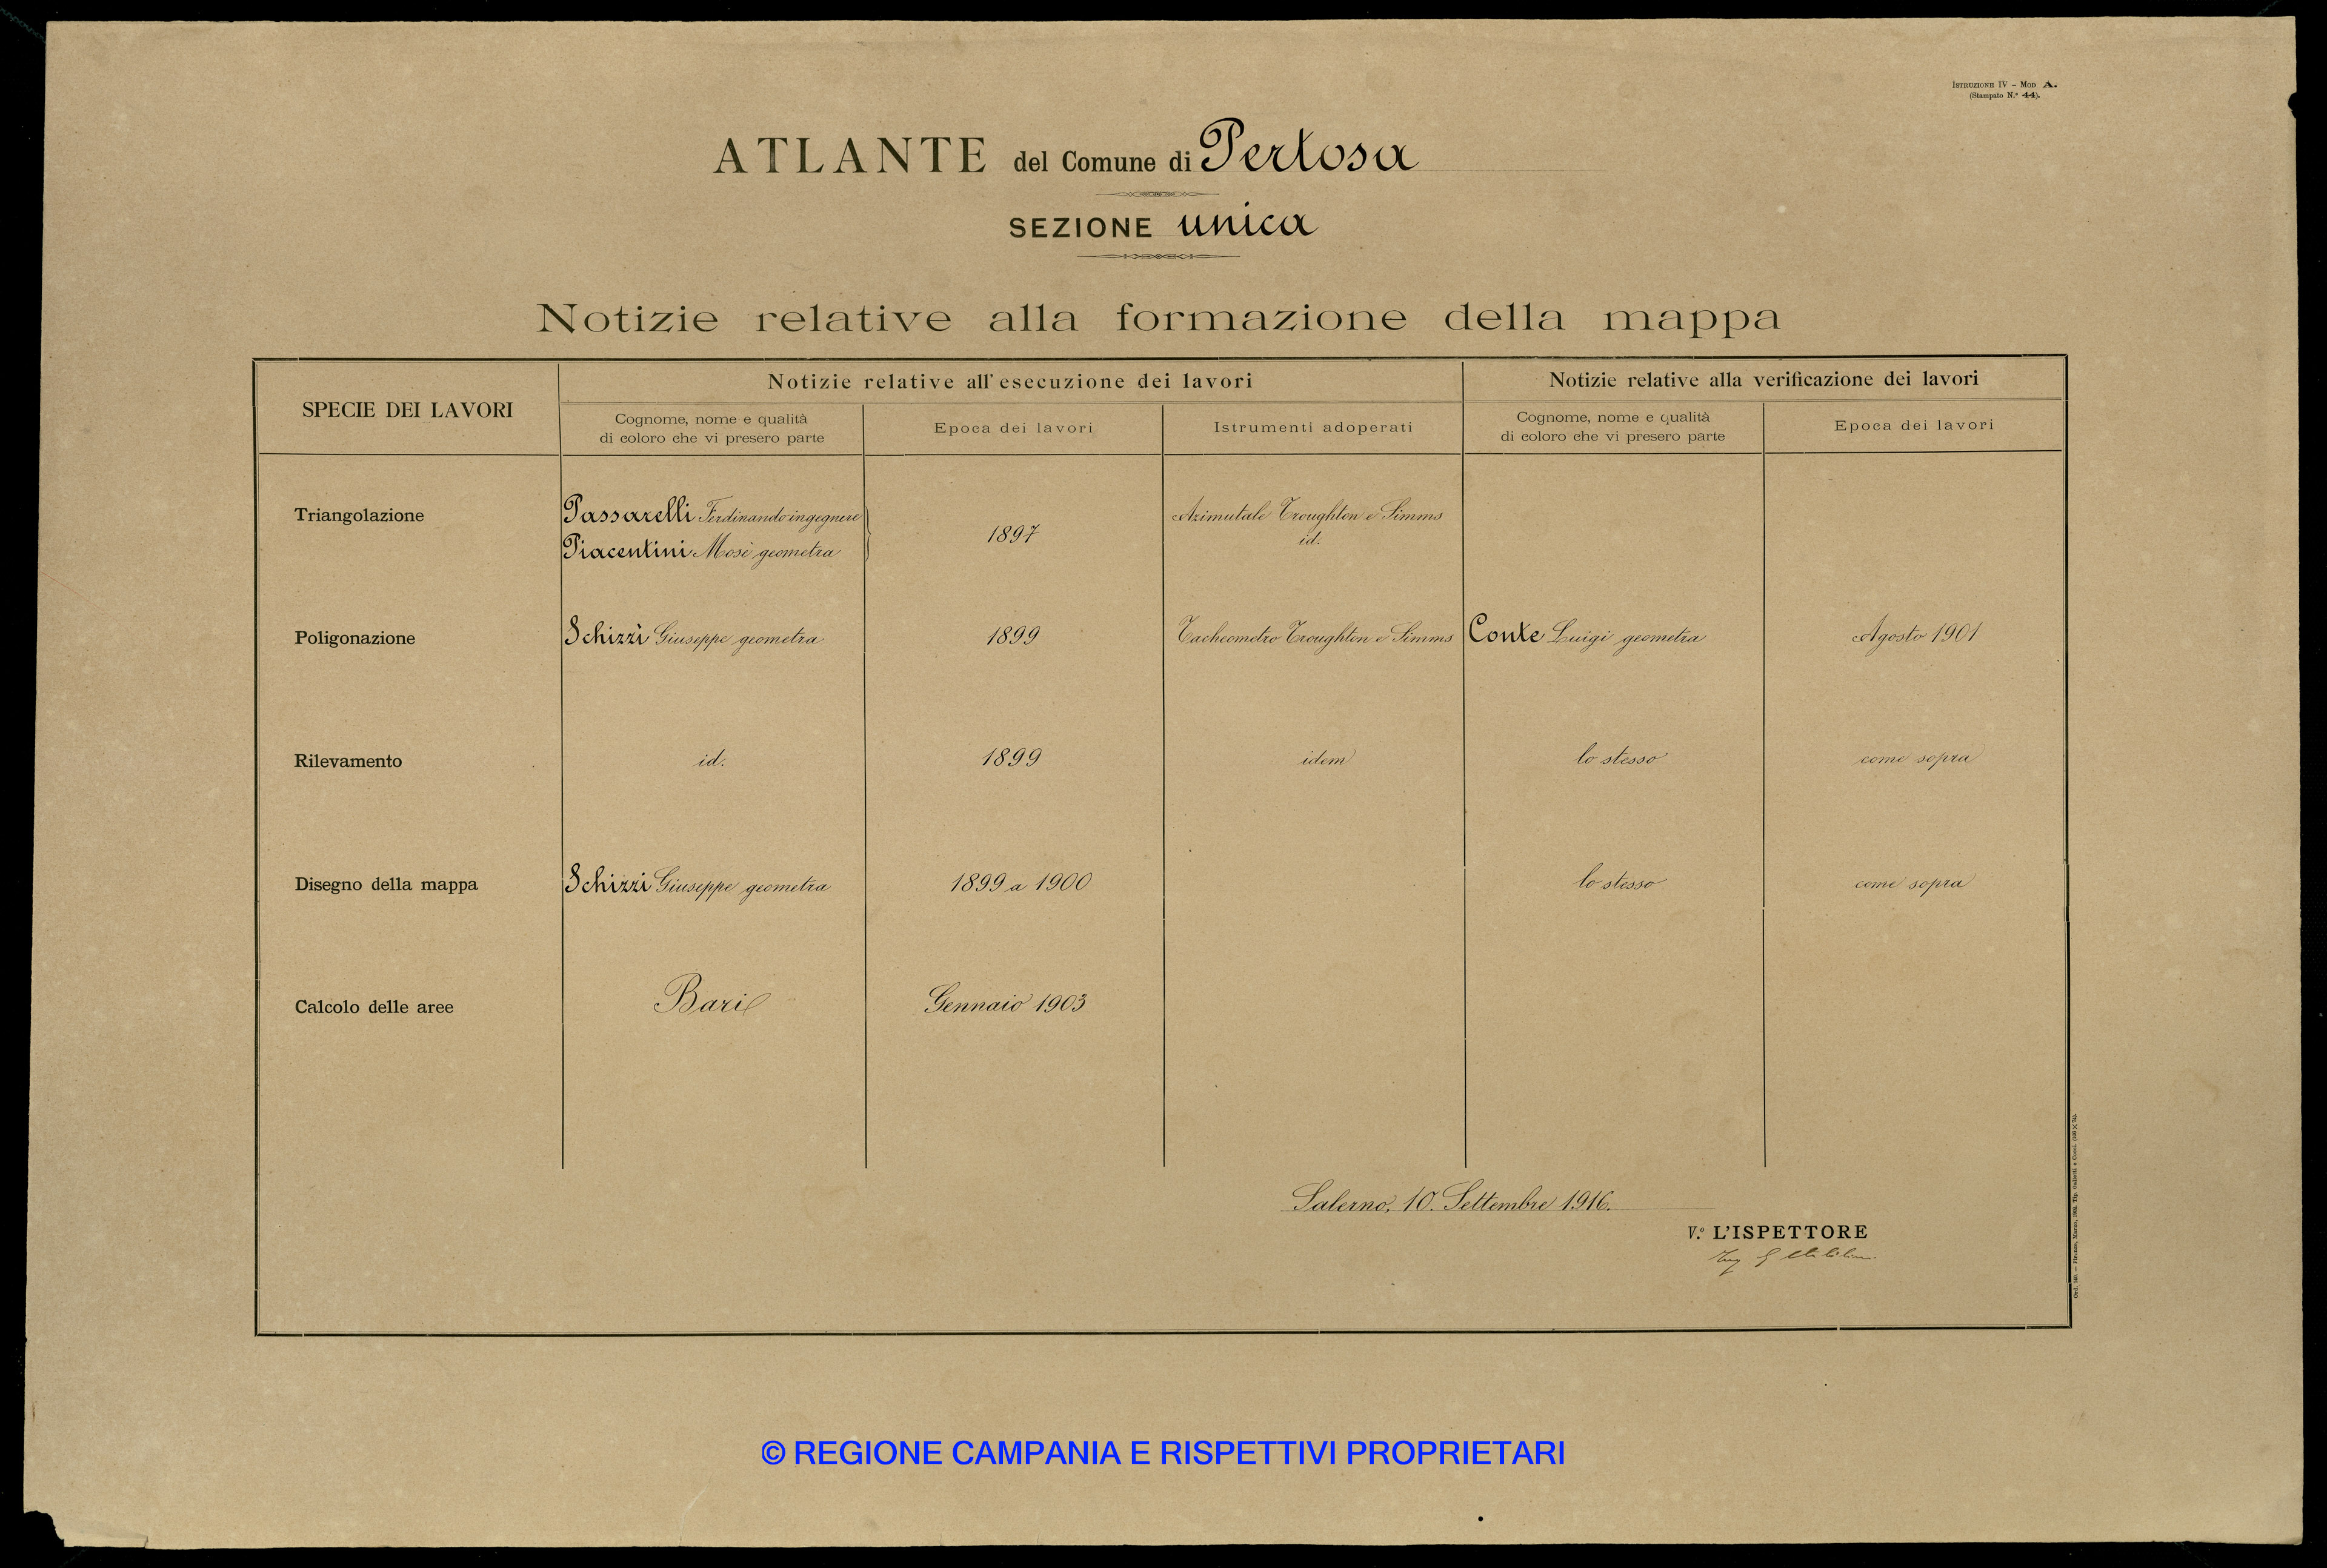 ISTRUZIONE IV – MOD A.
(Stampato N.° 44).
ATLANTE del Comune di Pertosa
SEZIONE unica
Notizie relative alla formazione della mappa
SPECIE DEI LAVORI
Notizie relative all'esecuzione dei lavori
Notizie relative alla verificazione dei lavori
Cognome, nome e qualità
di coloro che vi presero parte
Epoca dei lavori
Istrumenti adoperati
Cognome, nome e qualità
di coloro che vi presero parte
Epoca dei lavori
Triangolazione
Passarelli Ferdinando ingegnere
Piacentini Mosè geometra
1897
Azimutale Troughton e Simms
id.
Poligonazione
Schizzi Giuseppe geometra
1899
Tacheometro Troughton e Simms
Conte Luigi geometra
Agosto 1901
Rilevamento
id.
1899
idem
lo stesso
come sopra
Disegno della mappa
Schizzi Giuseppe geometra
1899 a 1900
lo stesso
come sopra
Calcolo delle aree
Bari
Gennaio 1903
Salerno, 10. Settembre 1916.
V.° L'ISPETTORE
Ing G
© REGIONE CAMPANIA E RISPETTIVI PROPRIETARI